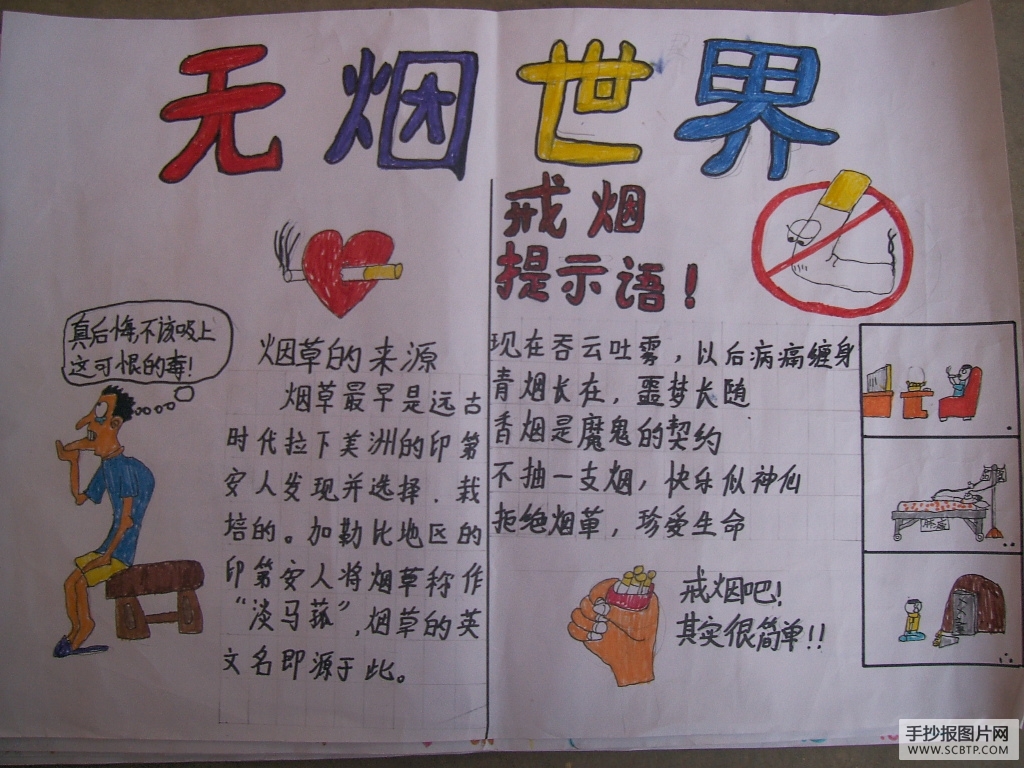 无烟世界
戒烟
提示语！
真后悔,不该吸上
这可恨的毒!
烟草的来源
烟草最早是远古
时代拉下美洲的印第
安人发现并选择.栽
培的。加勒比地区的
印第安人将烟草称作
“淡马菰”,烟草的英
文名即源于此。
现在吞云吐雾,以后病痛缠身
青烟长在,噩梦长随
香烟是魔鬼的契约
不抽一支烟,快乐似神仙
拒绝烟草,珍爱生命
戒烟吧!
其实很简单!!
手抄报图片网
WWW.SCBTP.COM